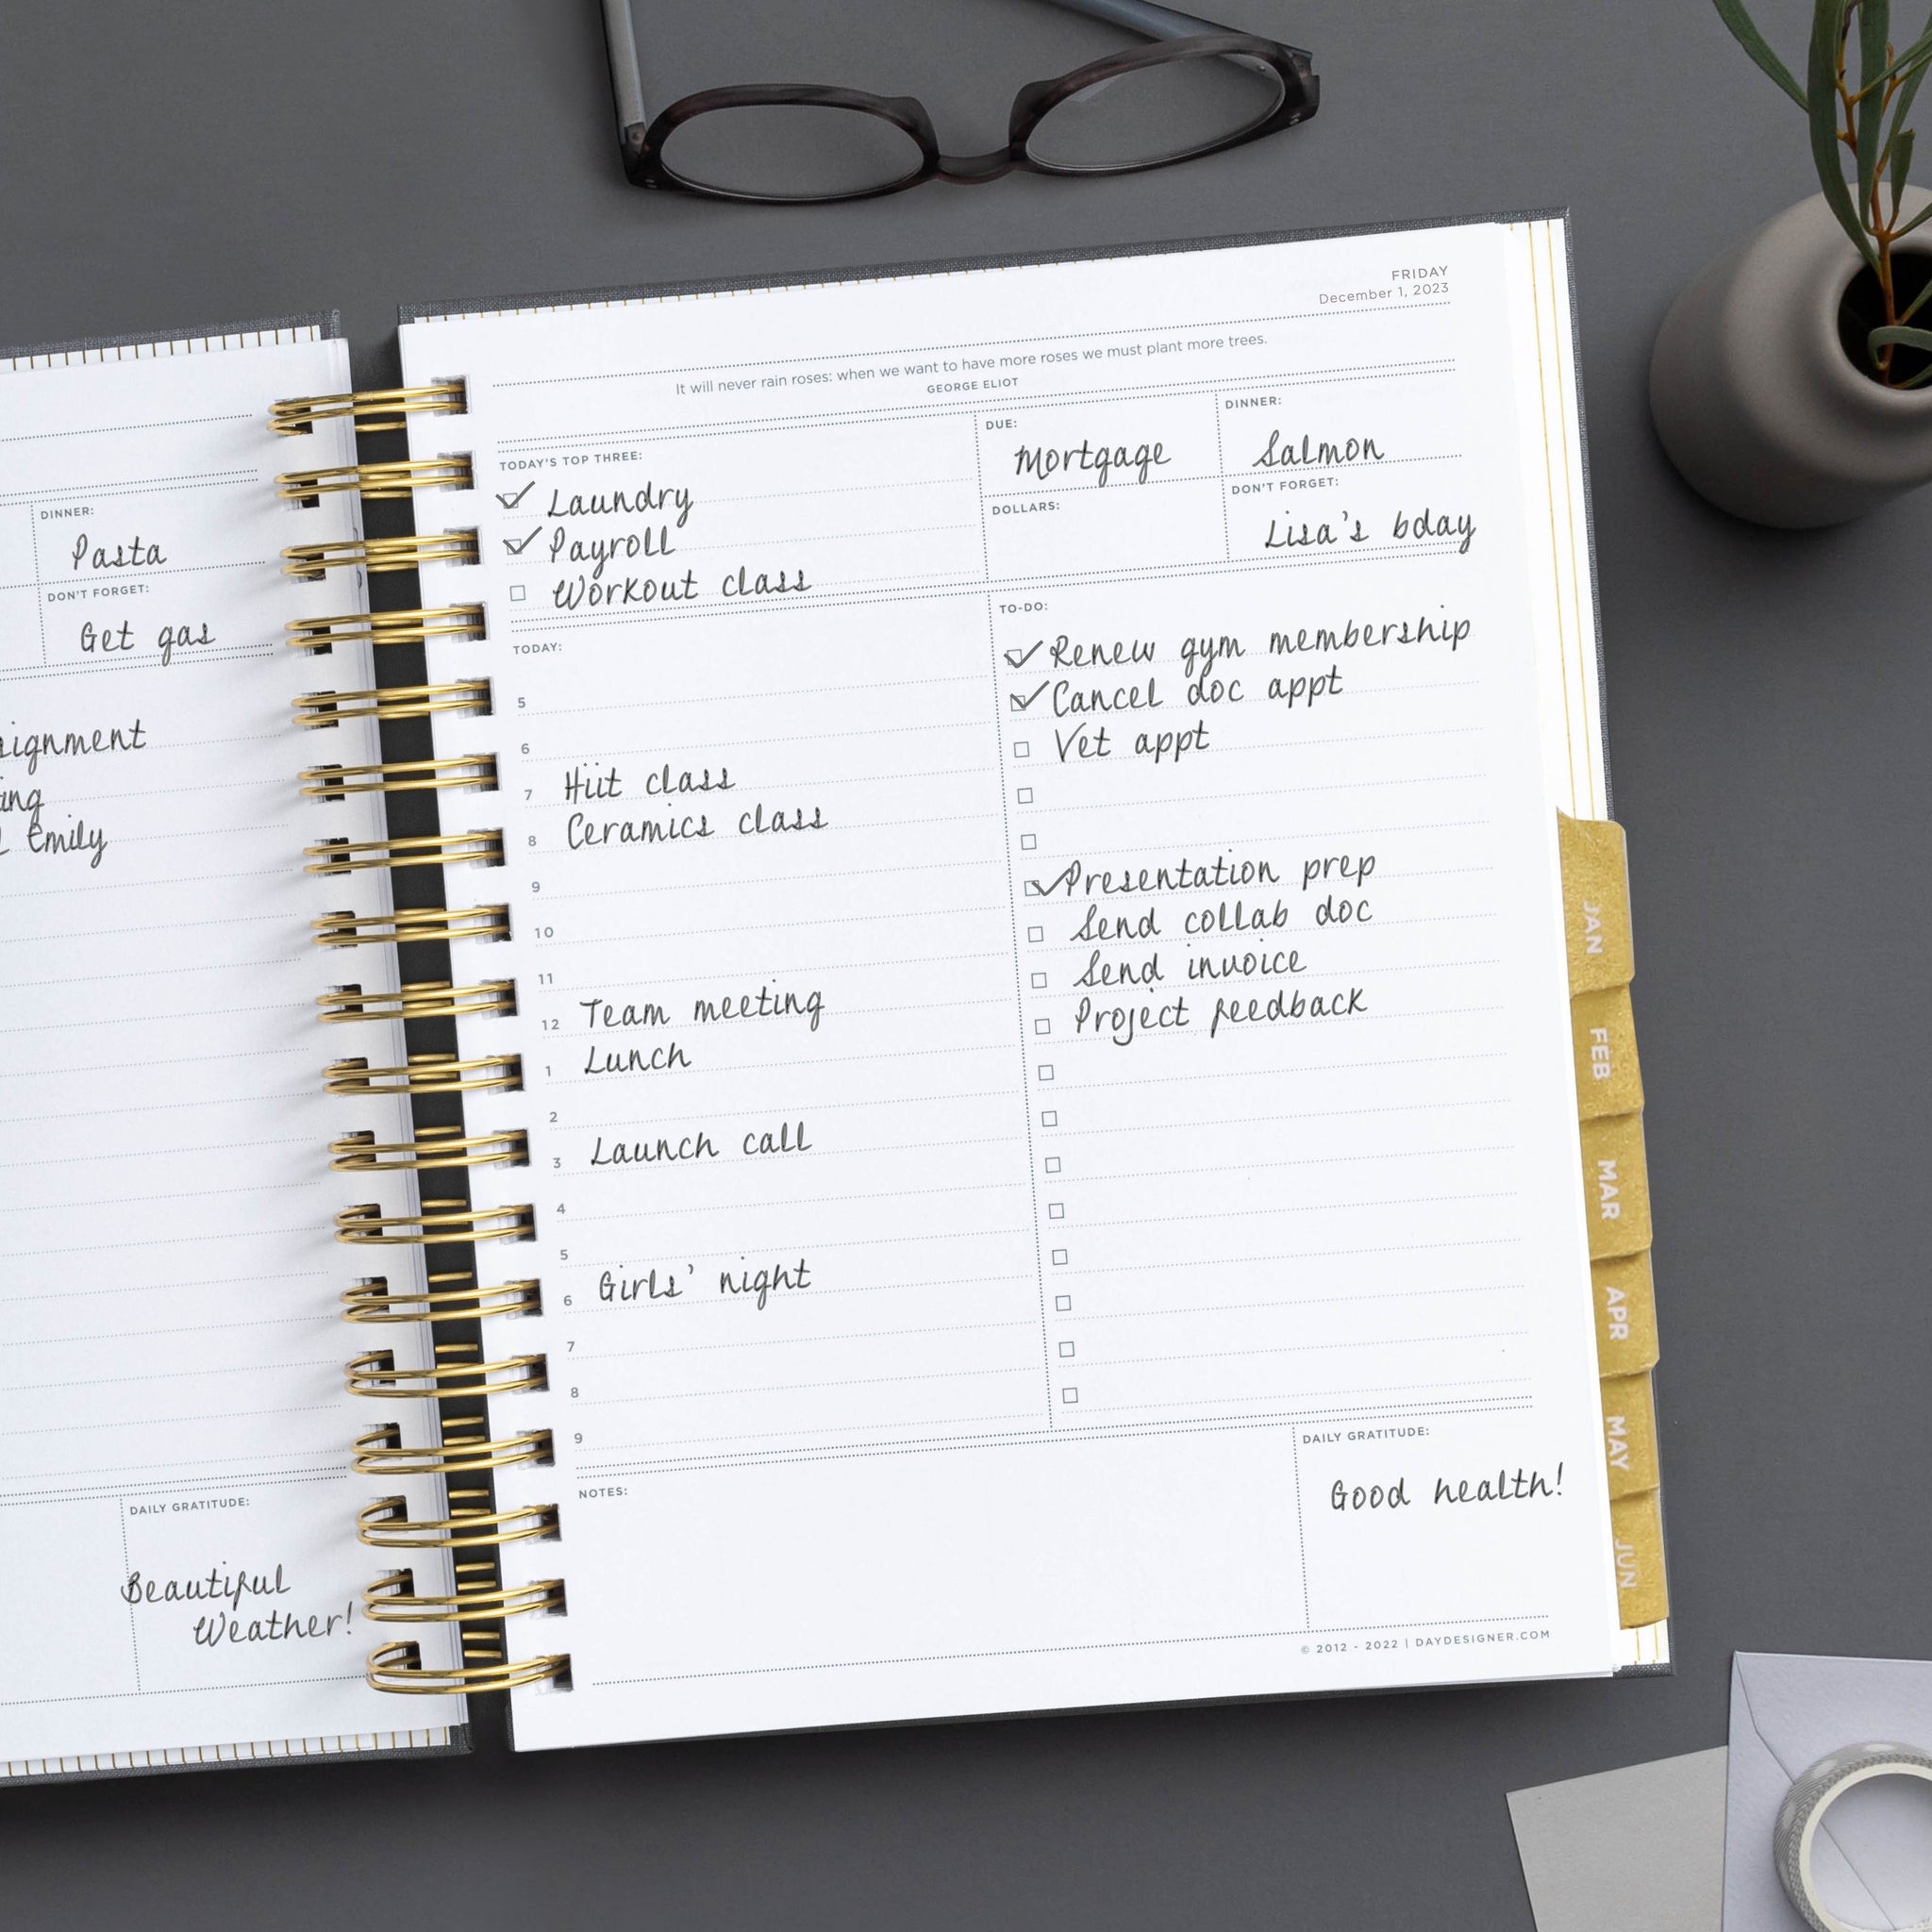 DINNER:
Pasta
DON'T FORGET:
Get gas
Emily
DAILY GRATITUDE:
Beautiful
Weather!
FRIDAY
December 1, 2023
It will never rain roses: when we want to have more roses we must plant more trees.
GEORGE ELIOT
TODAY'S TOP THREE:
Laundry
Payroll
Workout class
DUE:
Mortgage
DINNER:
Salmon
DOLLARS:
DON'T FORGET:
Lisa's bday
TODAY:
5
6
7 Hiit class
8 Ceramics class
9
10
11
12 Team meeting
1 Lunch
2
3 Launch call
4
5
6 Girls' night
7
8
9
TO-DO:
Renew gym membership
Cancel doc appt
Vet appt
Presentation prep
Send collab doc
Send invoice
Project feedback
NOTES:
DAILY GRATITUDE:
Good health!
© 2012 - 2022 | DAYDESIGNER.COM
JAN
FEB
MAR
APR
MAY
JUN